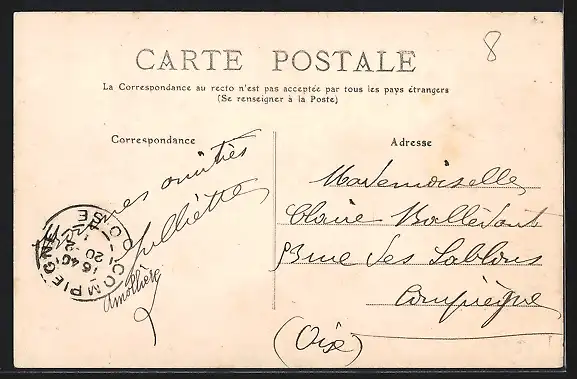 8
CARTE POSTALE
La Correspondance au recto n'est pas acceptée par tous les pays étrangers
(Se renseigner à la Poste)
Correspondance
Adresse
mes amitiés
Julliette
Amollière
COMPIEGNE
OISE
16 40
20
Mademoiselle
Claire
rue des Sablons
Compiègne
(Oise)